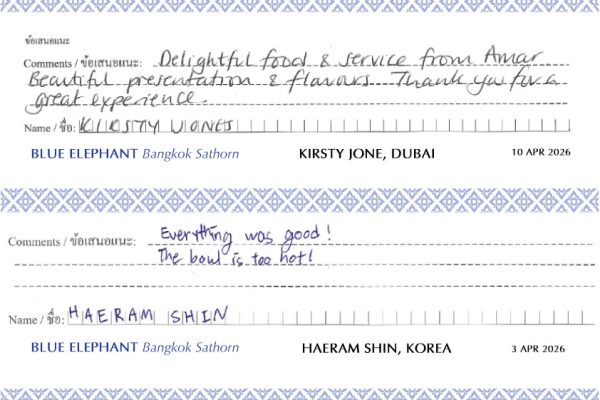 ข้อเสนอแนะ
Comments / ข้อเสนอแนะ: Delightful food & service from Amar
Beautiful presentation & flavours. Thank you for a
great experience.
Name / ชื่อ: KIRSTY JONES
BLUE ELEPHANT Bangkok Sathorn KIRSTY JONE, DUBAI 10 APR 2026
Comments / ข้อเสนอแนะ: Everything was good!
The bowl is too hot!
Name / ชื่อ: HAERAM SHIN
BLUE ELEPHANT Bangkok Sathorn HAERAM SHIN, KOREA 3 APR 2026